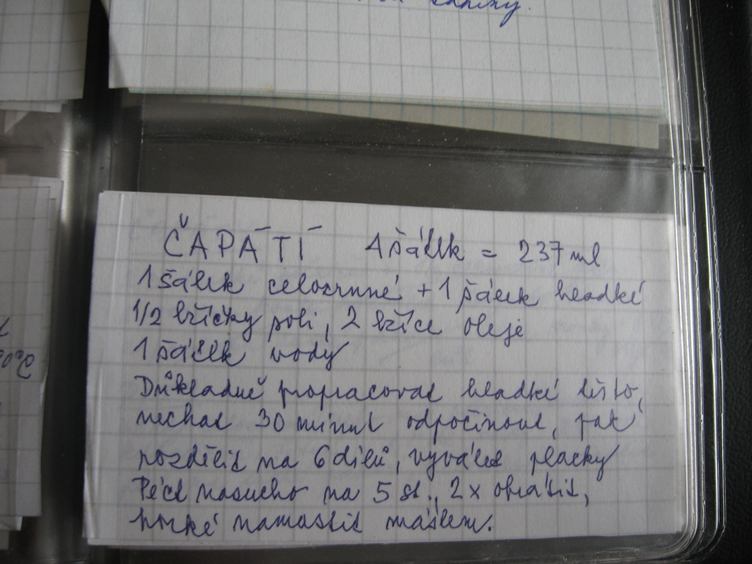 ČAPÁTÍ 1 šálek = 237 ml
1 šálek celozrnné + 1 šálek hladké
1/2 lžičky soli, 2 lžíce oleje
1 šálek vody
Důkladně propracovat hladké těsto,
nechat 30 minut odpočinout, pak
rozdělit na 6 dílů, vyválet placky
Péct nasucho na 5 st., 2x obrátit,
horké namastit máslem.
0°C